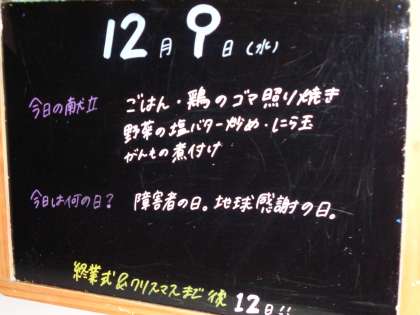 12月9日(水)
今日の献立 ごはん・鶏のゴマ照り焼き
野菜の塩バター炒め・にら玉
がんもの煮付け
今日は何の日? 障害者の日。地球感謝の日。
終業式&クリスマスまで後12日!!